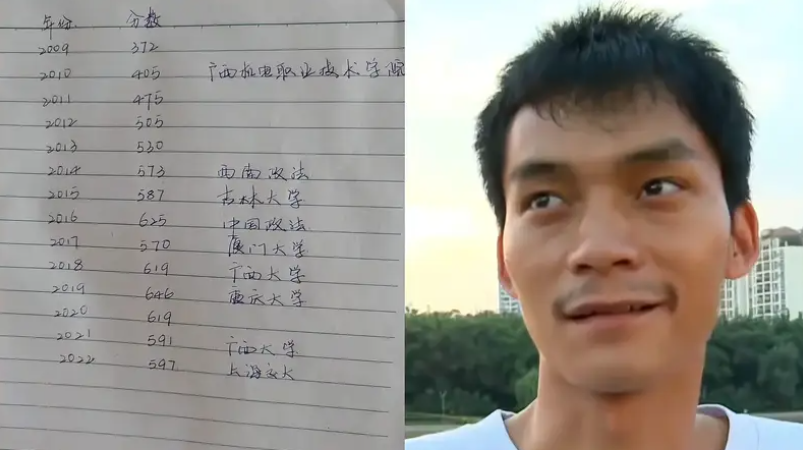 年份 分数
2009 372
2010 405 广西机电职业技术学院
2011 475
2012 505
2013 530
2014 573 西南政法
2015 587 吉林大学
2016 625 中国政法
2017 570 厦门大学
2018 619 广西大学
2019 646 重庆大学
2020 619
2021 591 广西大学
2022 597 上海交大